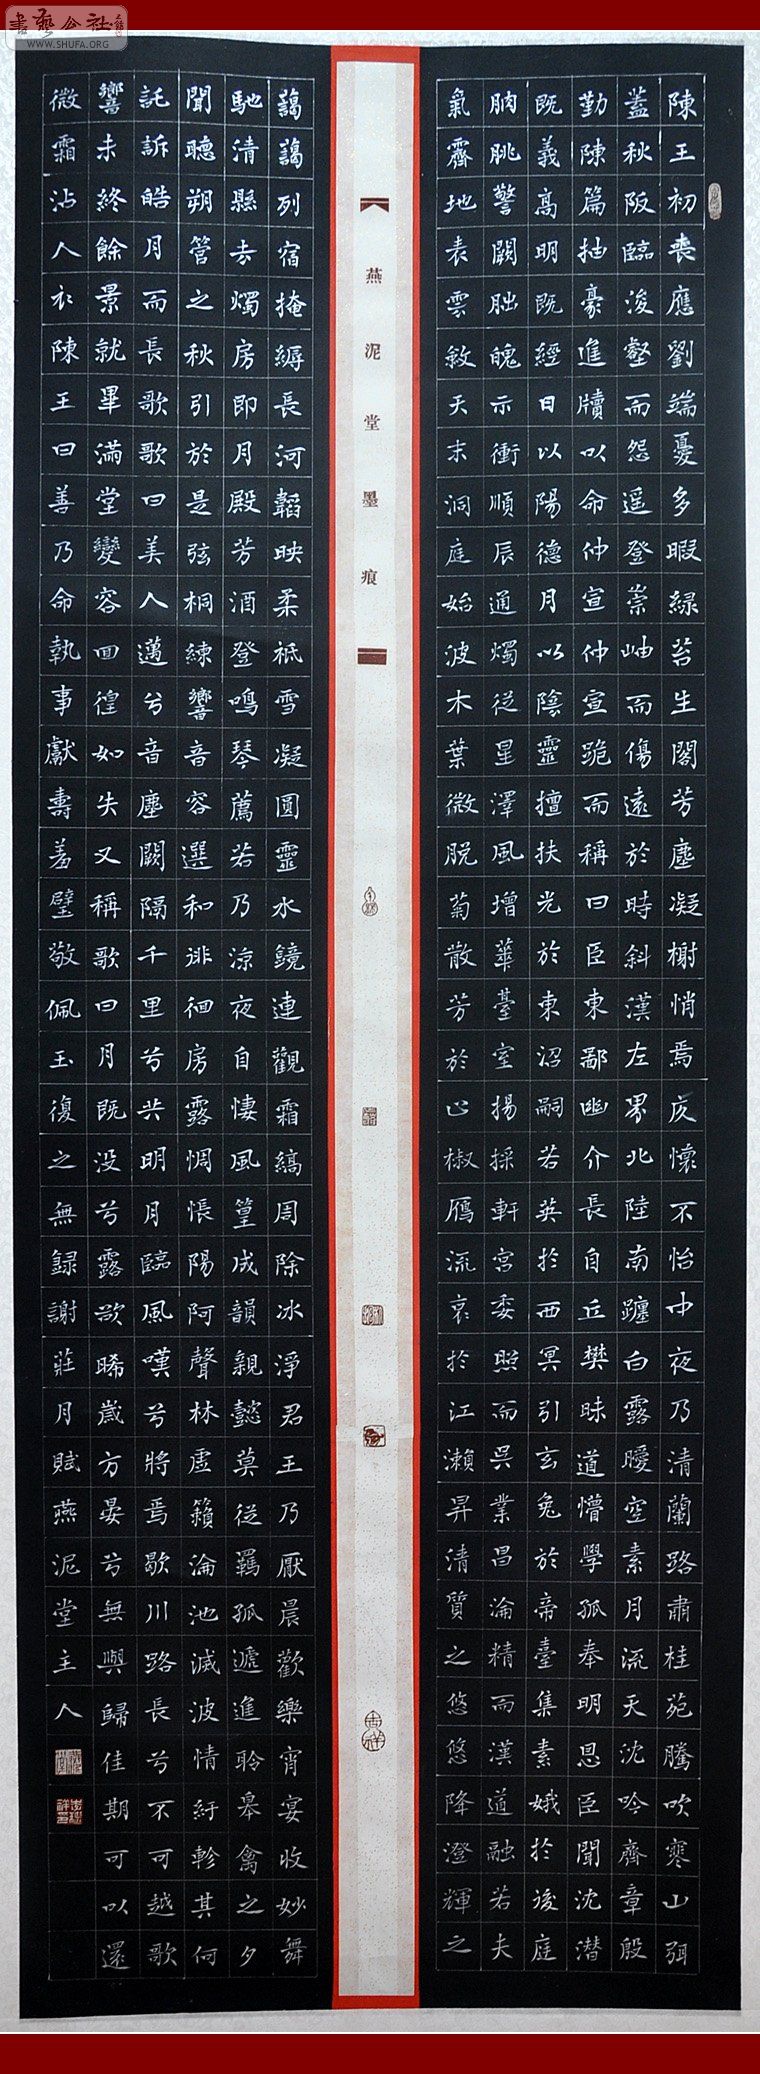 陳王初喪應劉端憂多暇綠苔生閣芳塵凝榭悄焉疚懷不怡中夜乃清蘭路肅桂苑騰吹寒山弭
蓋秋阪臨浚壑而怨遥登崇岫而傷遠於時斜漢左界北陸南躔白露曖空素月流天沈吟齊章殷
勤陳篇抽豪進牘以命仲宣仲宣跪而稱曰臣東鄙幽介長自丘樊昧道懵學孤奉明恩臣聞沈潛
既義高明既經日以陽德月以陰靈擅扶光於東沼嗣若英於西冥引玄兔於帝臺集素娥於後庭
朒朓警闕朏魄示衝順辰通燭從星澤風增華臺室揚採軒宮委照而吳業昌淪精而漢道融若夫
氣霽地表雲斂天末洞庭始波木葉微脫菊散芳於山椒雁流哀於江瀨昇清質之悠悠降澄輝之
燕泥堂墨痕
藹藹列宿掩縟長河韜映柔祇雪凝圓靈水鏡連觀霜縞周除冰淨君王乃厭晨歡樂宵宴收妙舞
馳清縣去燭房即月殿芳酒登鳴琴薦若乃涼夜自悽風篁成韻親懿莫從羈孤遞進聆皋禽之夕
聞聽朔管之秋引於是弦桐練響音容選和徘徊房露惆悵陽阿聲林虛籟淪池滅波情紆軫其何
託訴皓月而長歌歌曰美人邁兮音塵闕隔千里兮共明月臨風嘆兮將焉歇川路長兮不可越歌
響未終餘景就畢滿堂變容回徨如失又稱歌曰月既没兮露欲晞歲方晏兮無與歸佳期可以還
微霜沾人衣陳王曰善乃命執事獻壽羞璧敬佩玉復之無録謝莊月賦燕泥堂主人
書藝公社
WWW.SHUFA.ORG